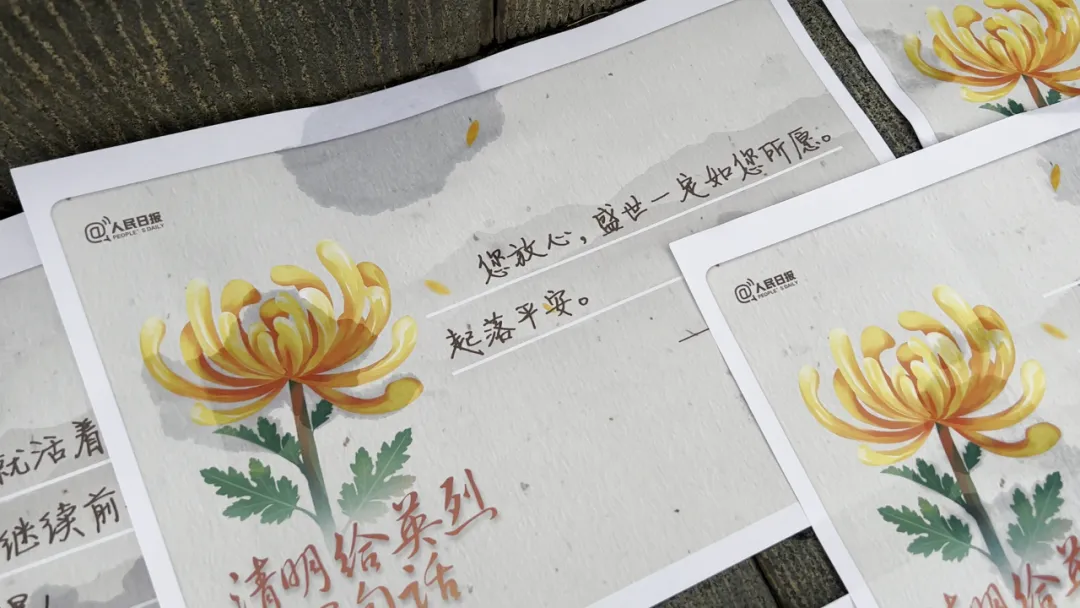 人民日报
PEOPLE'S DAILY
您放心，盛世一定如您所愿。
起落平安。
清明给英烈
句话
人民日报
PEOPLE'S DAILY
就活着
继续前
给英